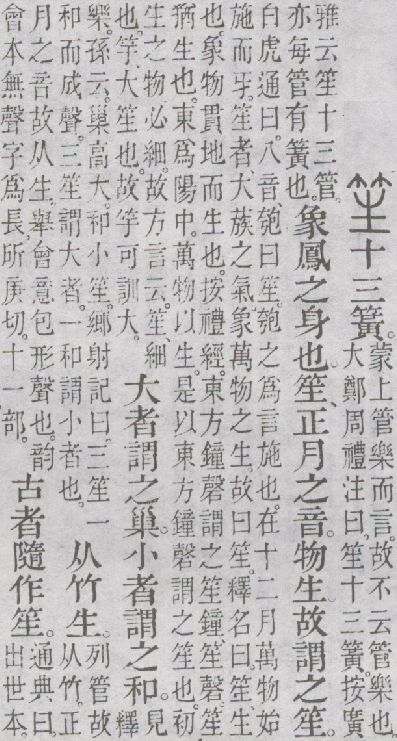 笙十三簧。
蒙上管樂而言。故不云管樂也。
大鄭周禮注曰。笙十三簧。按廣
雅云笙十三管。
亦每管有簧也。
象鳳之身也。笙、正月之音。物生故謂之笙。
白虎通曰。八音。匏曰笙。匏之爲言施也。在十二月萬物始
施而牙。笙者、大族之氣。象萬物之生。故曰笙。釋名曰。笙、生
也。象物貫地而生也。按禮經。東方鐘磬謂之笙鐘笙磬。笙
猶生也。東爲陽中。萬物以生。是以東方鐘磬謂之笙也。初
生之物必細。故方言云。笙、細
也。竽、大笙也。故竽可訓大。
大者謂之巢。小者謂之和。
見
釋
樂。孫云。巢、高大。和、小笙。鄉射記曰。三笙一
和而成聲。三笙謂大者。一和謂小者也。
从竹。生。
列管故
从竹。正
月之音故从生。舉會意包形聲也。韵
會本無聲字爲長。所庚切。十一部。
古者隨作笙。
通典曰。
出世本。